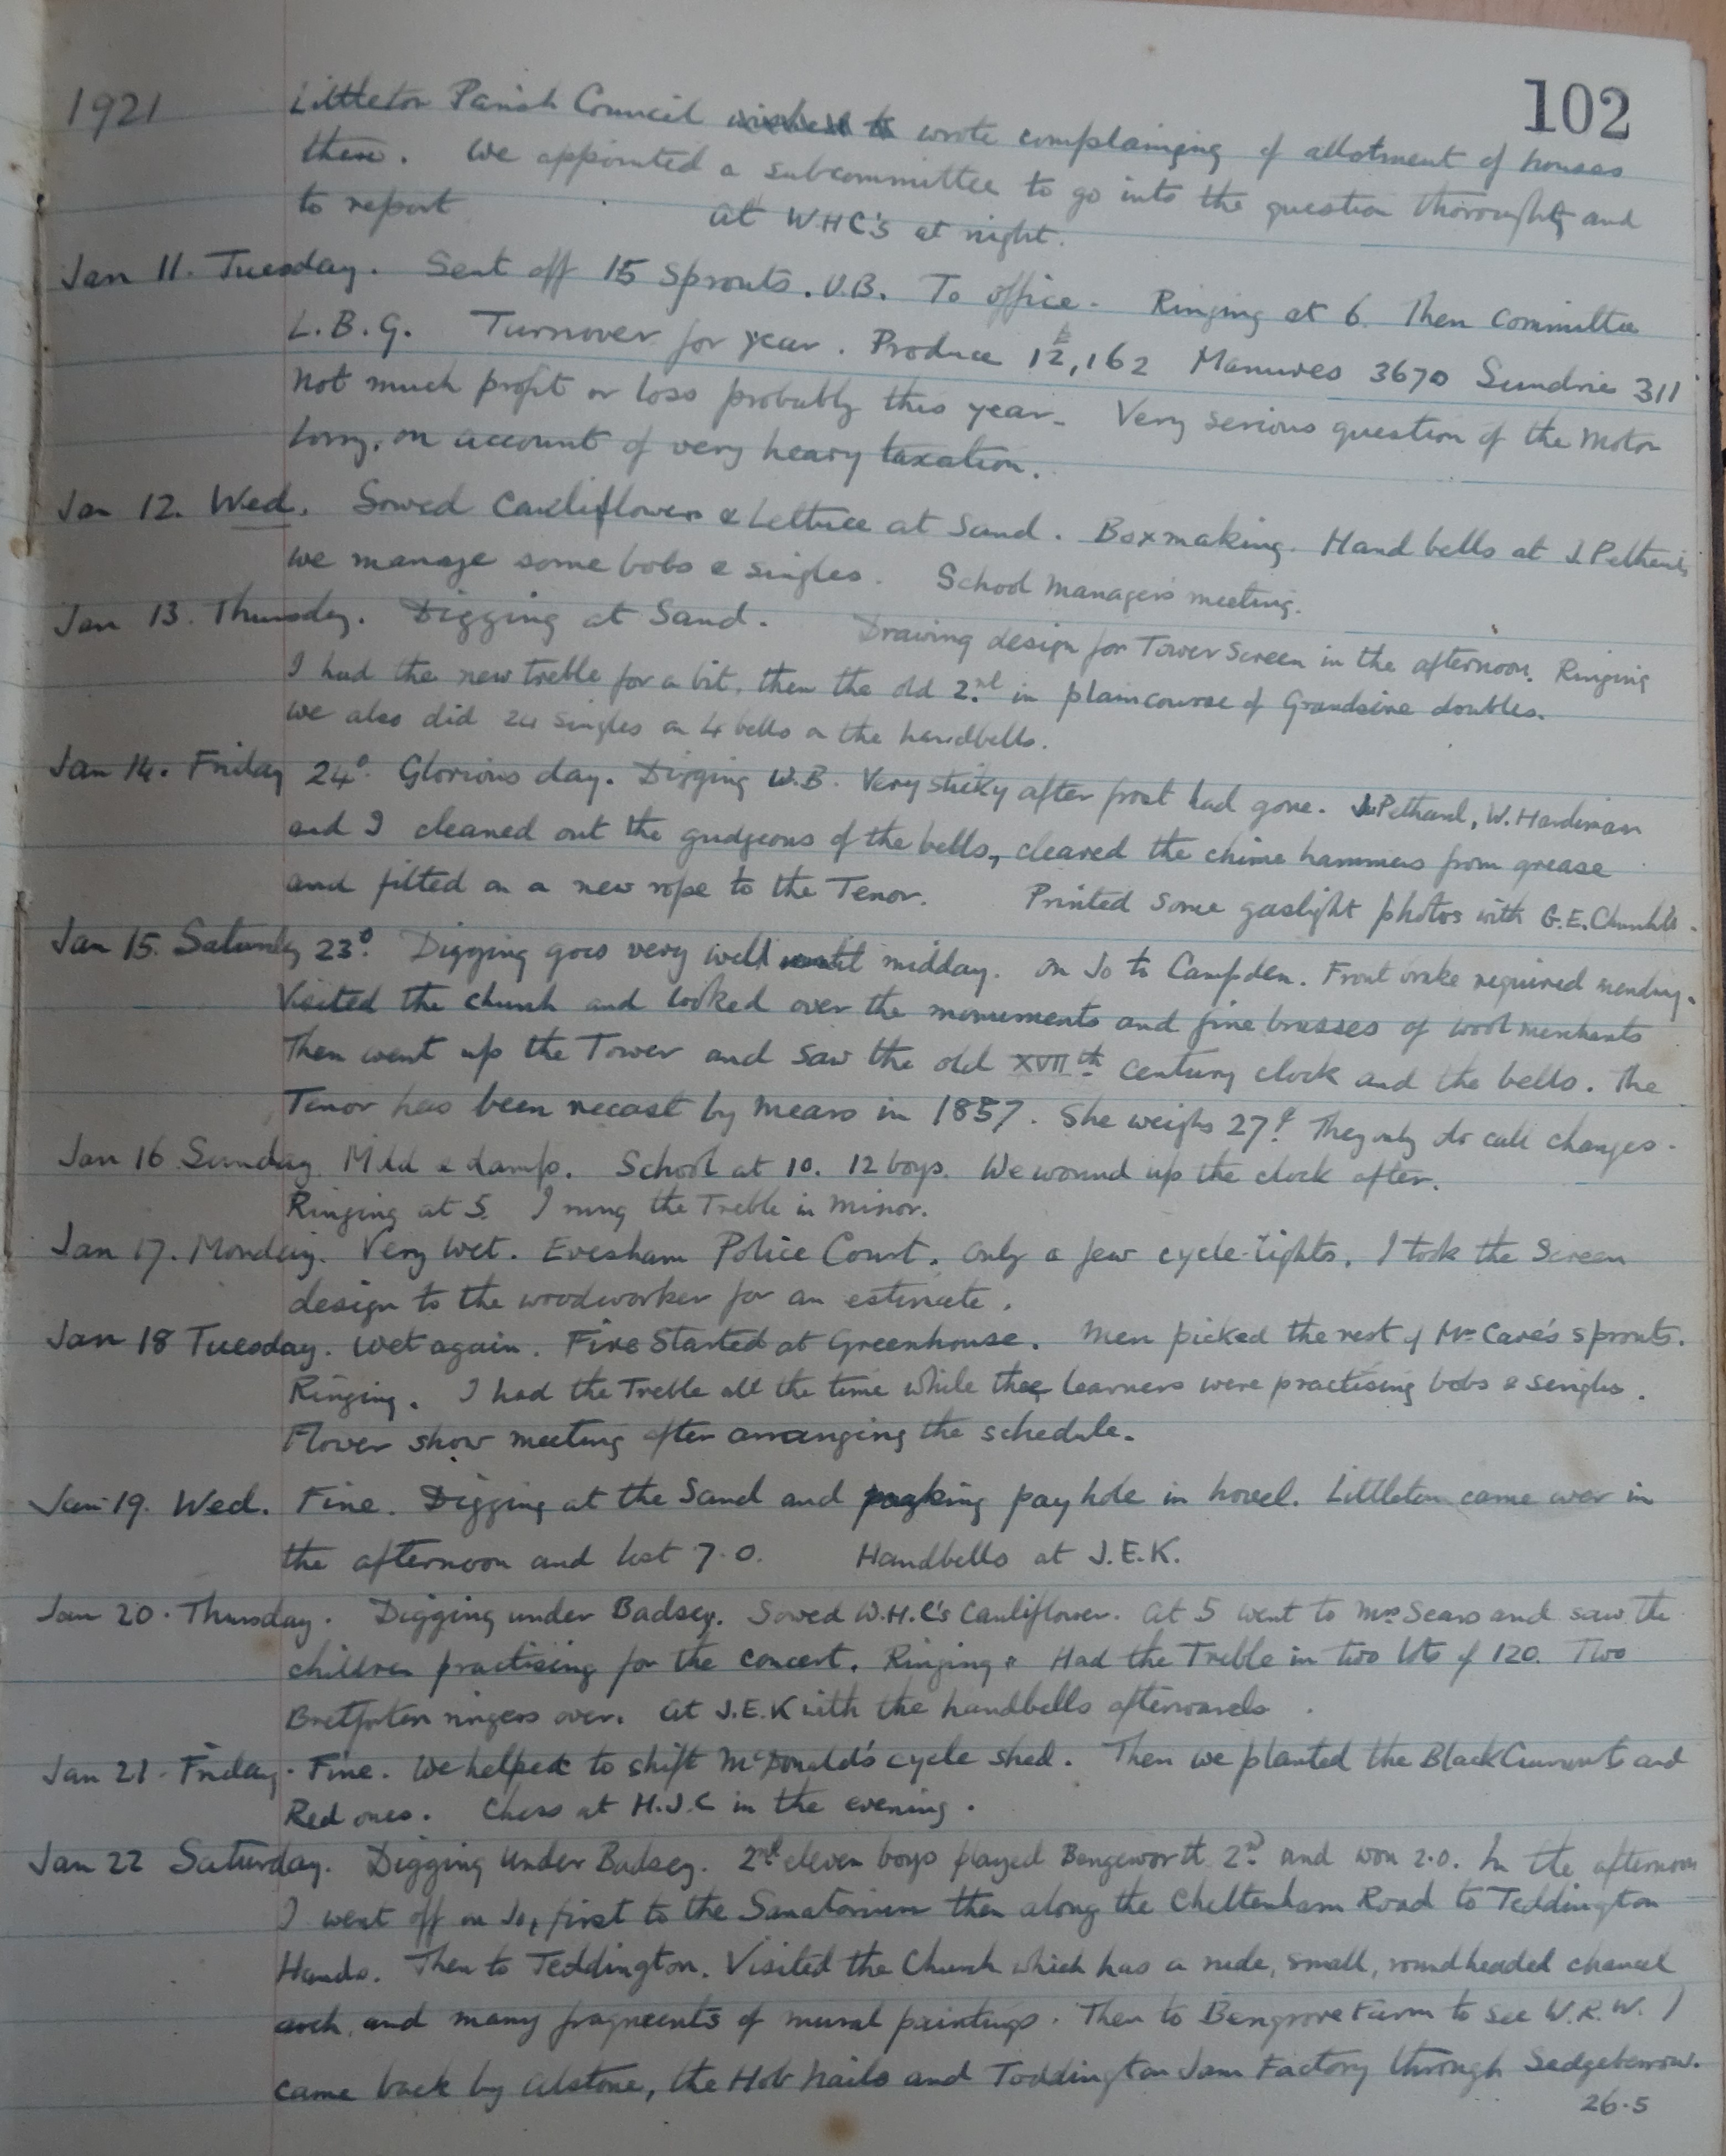 102
1921 Littleton Parish Council wrote complaining of allotment of houses
there. We appointed a subcommittee to go into the question thoroughly and
to report At WHC's at night.
Jan 11. Tuesday. Sent off 15 Sprouts. U.B. To office. Ringing at 6. Then Committee
L.B.G. Turnover for year. Produce £12,162 Manures 3670 Sundries 311
Not much profit or loss probably this year. Very serious question of the Motor
Lorry, on account of very heavy taxation.
Jan 12. Wed. Sowed Cauliflowers & Lettuce at Sand. Boxmaking. Hand bells at J. Pethard's
we manage some bobs & singles. School Managers meeting.
Jan 13. Thursday. Digging at Sand. Drawing design for Tower Screen in the afternoon. Ringing
I had the new treble for a bit, then the old 2nd in plain course of Grandsire doubles.
We also did 24 singles on 4 bells on the handbells.
Jan 14. Friday 24°. Glorious day. Digging U.B. Very sticky after frost had gone. J. Pethard, W. Hardiman
and I cleaned out the gudgeons of the bells, cleared the chime hammers from grease
and fitted on a new rope to the Tenor. Printed some gaslight photos with G.E.
Jan 15. Saturday 23°. Digging goes very well until midday. On Jo to Campden. Front brake required mending.
Visited the church and looked over the monuments and fine brasses of wool merchants
Then went up the Tower and saw the old XVIIth century clock and the bells. The
Tenor has been recast by Mears in 1857. She weighs 27. They only do call changes.
Jan 16 Sunday. Mild & damp. School at 10. 12 boys. We wound up the clock after.
Ringing at 5. I rung the Treble in Minor.
Jan 17. Monday. Very Wet. Evesham Police Court. Only a few cycle-lights. I took the Screen
design to the woodworker for an estimate.
Jan 18 Tuesday. Wet again. Fire Started at Greenhouse. Men picked the rest of Mr Cave's sprouts.
Ringing. I had the Treble all the time while the learners were practising bobs & singles.
Flower show meeting after arranging the schedule.
Jan 19. Wed. Fine. Digging at the Sand and making pay hole in hovel. Littleton came over in
the afternoon and lost 7.0. Handbells at J.E.K.
Jan 20. Thursday. Digging under Badsey. Sowed W.H.C's Cauliflower. At 5 went to Mrs Sears and saw the
children practising for the concert. Ringing. Had the Treble in two lots of 120. Two
Bretforton ringers over. At J.E.K with the handbells afterwards.
Jan 21. Friday. Fine. We helped to shift McDonald's cycle shed. Then we planted the Black Currants and
Red ones. Chess at H.J.C in the evening.
Jan 22 Saturday. Digging Under Badsey. 2nd eleven boys played Bengeworth 2nd and won 2.0. In the afternoon
I went off on Jo, first to the Sanatorium then along the Cheltenham Road to Teddington
Hands. Then to Teddington. Visited the Church which has a rude, small, roundheaded chancel
arch, and many fragments of mural paintings. Then to Bengrove Farm to see W.R.W. I
came back by Alstone, the Hob Nails and Toddington Jam Factory through Sedgeberrow.
26.5